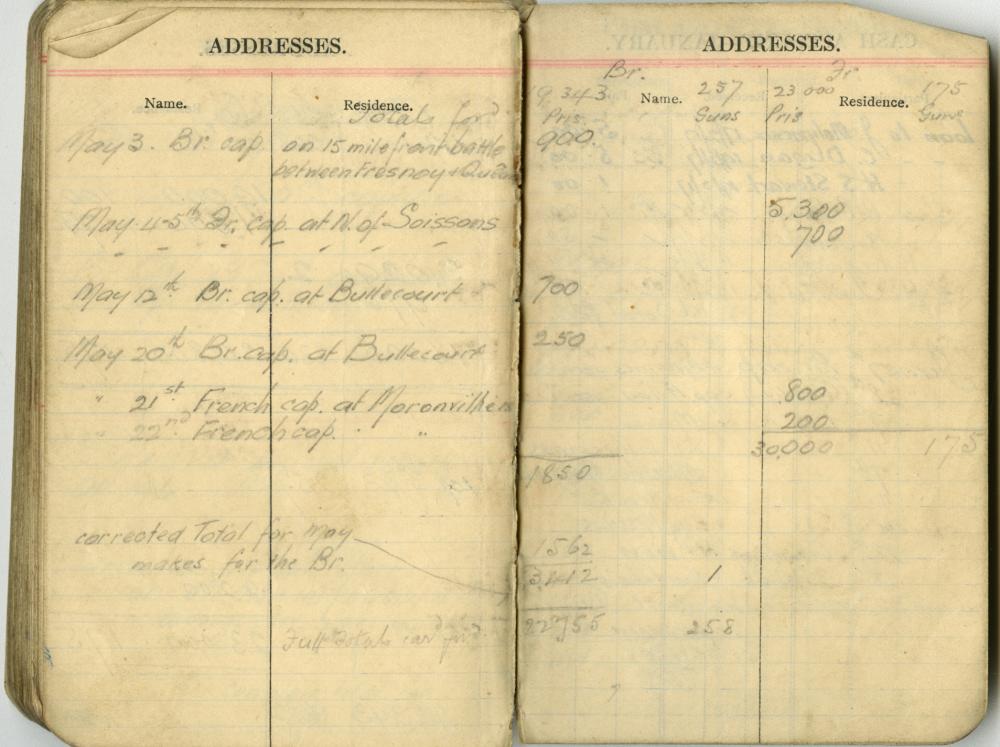 ADDRESSES.
Name. Residence.
Totals for'd
May 3. Br. cap. on 15 mile front battle
between Fresnoy +
May 4-5th Fr. cap. at N. of Soissons
" " " " " "
May 12th Br. cap. at Bullecourt
May 20th Br. cap. at Bullecourt
" 21st French cap. at Moronvilliers
" 22nd French cap. " "
corrected Total for May
makes for the Br.
Full totals car'd for'd
ADDRESSES.
Br. Fr.
19,343 Name. 257 23000 Residence. 175
Pris. Guns Pris Guns
900.
5,300
700
700
250
800
200
30,000 175
1850
1562
3,412 1
22755 258